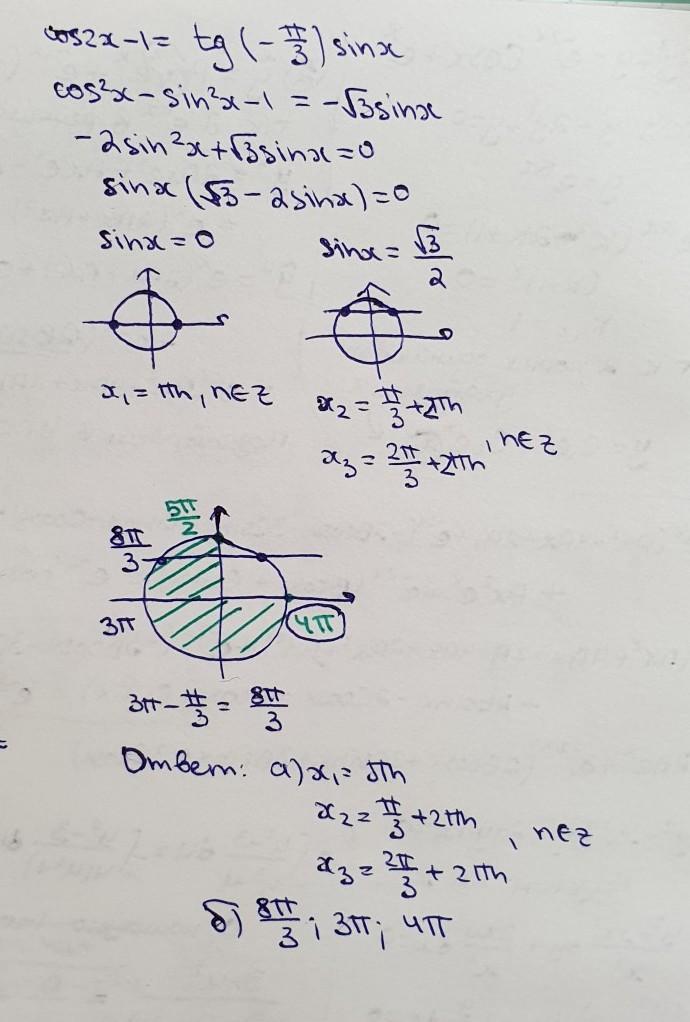 cos2x-1= tg(-π/3)sinx
cos²x-sin²x-1 = -√3sinx
-2sin²x+√3sinx=0
sinx(√3-2sinx)=0
sinx=0
sinx=√3/2
x₁=πn, n∈z
x₂=π/3+2πn
x₃=2π/3+2πn, n∈z
5π/2
8π/3
3π
4π
3π-π/3=8π/3
Ответ: а)x₁=πn
x₂=π/3+2πn
x₃=2π/3+2πn, n∈z
б) 8π/3; 3π; 4π